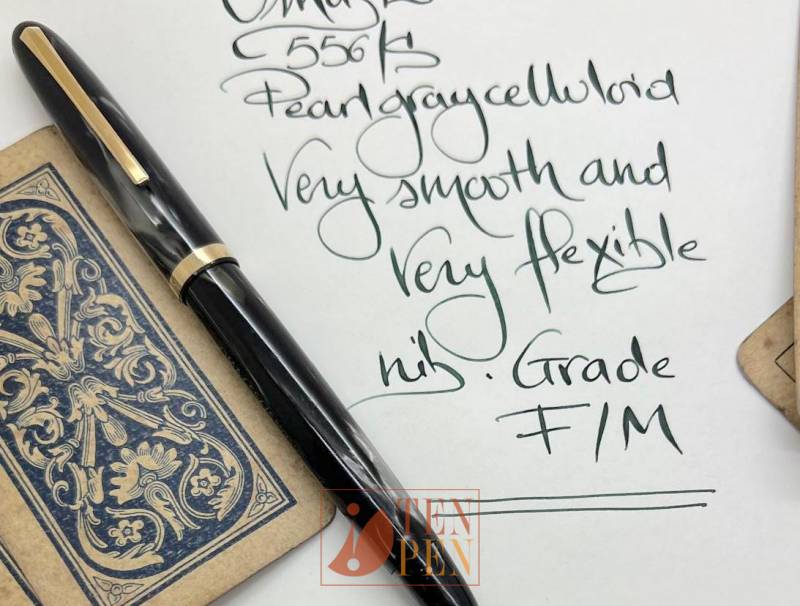 556/S
Pearl gray celluloid
Very smooth and
very flexible
nib. Grade
F/M
TEN
PEN